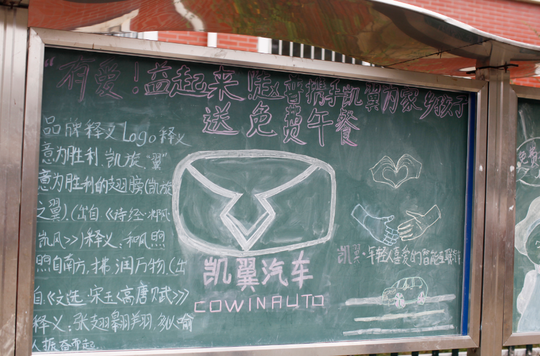 "有爱!益起来陡普携手凯翼为家乡孩子
送免费午餐
品牌释义Logo释义
意为胜利,凯旋,"翼"
意为胜利的翅膀(凯旋
之翼).(出自《诗经·邶风·
凯风》)释义:和风照
照自南方,拂润万物(出
自《文选·宋玉《高唐赋》》
释义:张翅翱翔,多以喻
人振奋奋起.
凯翼汽车
COWINAUTO
凯翼·年轻人喜爱的智能
免费